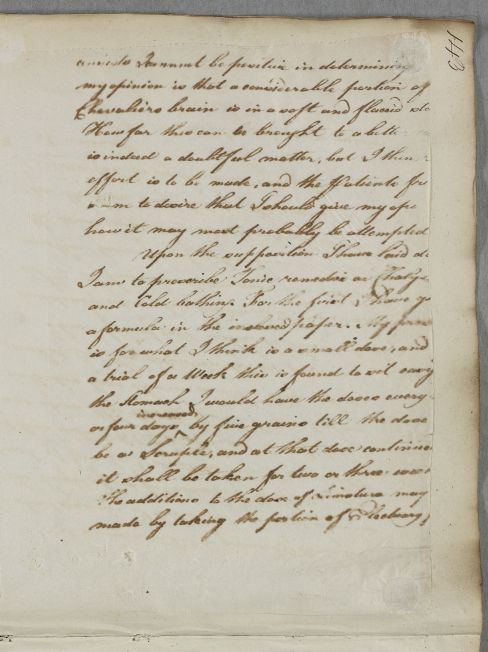 143
I cannot be positive in determining
my opinion is that a considerable portion of
Chevaliers brain is in a soft and flaccid
How far this can be brought to a
is indeed a doubtful matter, but I
effort is to be made, and the Patients
to desire that I should give my
how it may most probably be attempted
Upon the supposition I have laid
I am to prescribe Tonic remedies as
and Cold bathing. For the first I have
a formula in the inclosed paper. My
is for what I think is a small dose, and
a trial of a Week this is found to sit easy
the Stomach I would have the doses every
or four days increased by five grains till the dose
be a Scruple, and at that dose continue
it shall be taken for two or three
The additions to the dose of may
made by taking the portion of Electuary,